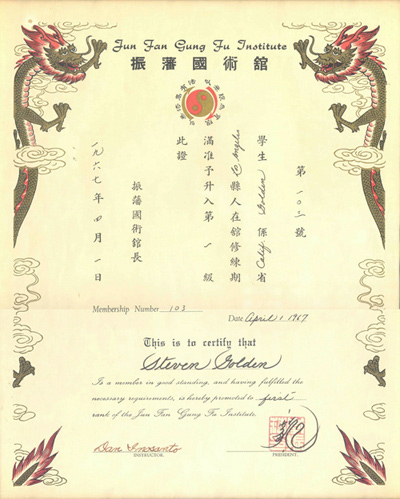 Jun Fan Gung Fu Institute
振藩國術館
以無法為有法 以無限為有限
第一〇二號
學生 Golden 係 Calif 省
Lo Angeles 縣人在館修練期
滿准予升入第一級
此證
振藩國術館長
一九六七年四月一日
Membership Number 103
Date April 1 1967
This is to certify that
Steven Golden
Is a member in good standing, and having fulfilled the
necessary requirements, is hereby promoted to first
rank of the Jun Fan Gung Fu Institute.
Dan Inosanto
INSTRUCTOR.
PRESIDENT.